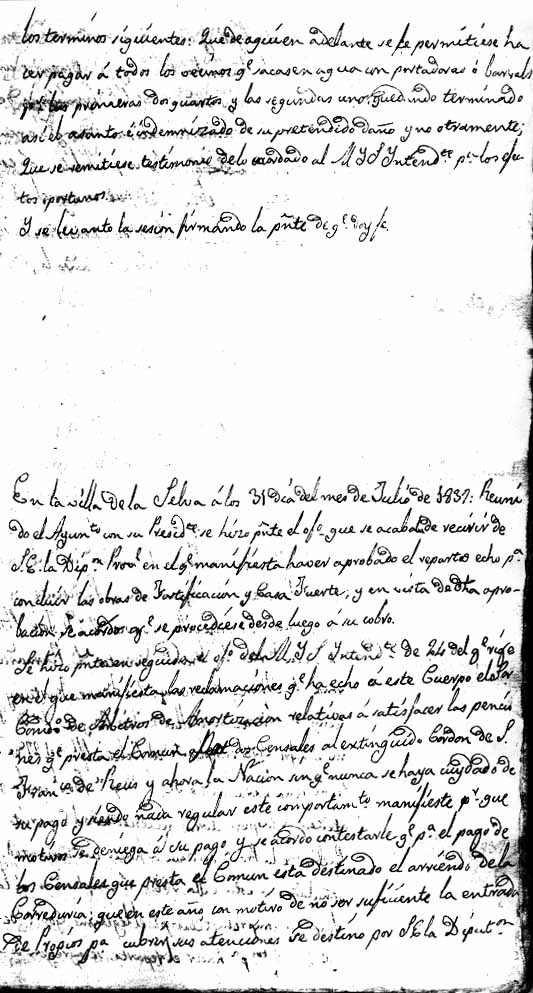 los terminos siguientes: Que de aqui en adelante se le permitiese ha
cer pagar á todos los vecinos q.e sacasen agua con portadoras ó barrals
p.r las primeras dos quartos y las segundas uno, quedando terminado
asi el asunto é indemnizado de su pretendido daño y no otramente;
Que se remitiese testimonio de lo acordado al M Y S Intend.te p.a los efec
tos oportunos.
Y se levanto la sesion firmando la pñte de q.e doy fe.
En la villa de la Selva á los 31 dia del mes de Julio de 1837: Reuni
do el Ayun.to con su Presid.te se hizo pñte el ofo. que se acabat de recivir de
S.E. la Dip.n Prov.l en el q.e manifiesta haver aprobado el reparto echo p.a
concluir las obras de Fortificación y Casa Fuerte, y en vista de dha apro-
bacion se acordó q.e se procediese desde luego á su cobro.
Se hizo pñte en seguida el ofo. del M. Y S Intend.te de 24 del q.e rige
en el que manifiesta las reclamaciones q.e ha echo á este Cuerpo el Sor
Comdo. de Arbitrios de Amortización relativas á satisfacer las pencio
nes q.e presta el Comun dos Censales al extinguido Cordon de S.
Fran.co de Reus y ahora la Nacion sin q.e nunca se haya cuydado de
su pago y siendo nada regular este comportam.to manifieste p.r que
motivos se deniega á su pago y se acordo contestarle q.e p.a el pago de
los Censales que presta el Comun está destinado el arriendo de la
Correduria; que en este año con motivo de no ser suficiente la entrada
de Propios p.a cubrir sus atenciones se destinó por S.E. la Diput.on